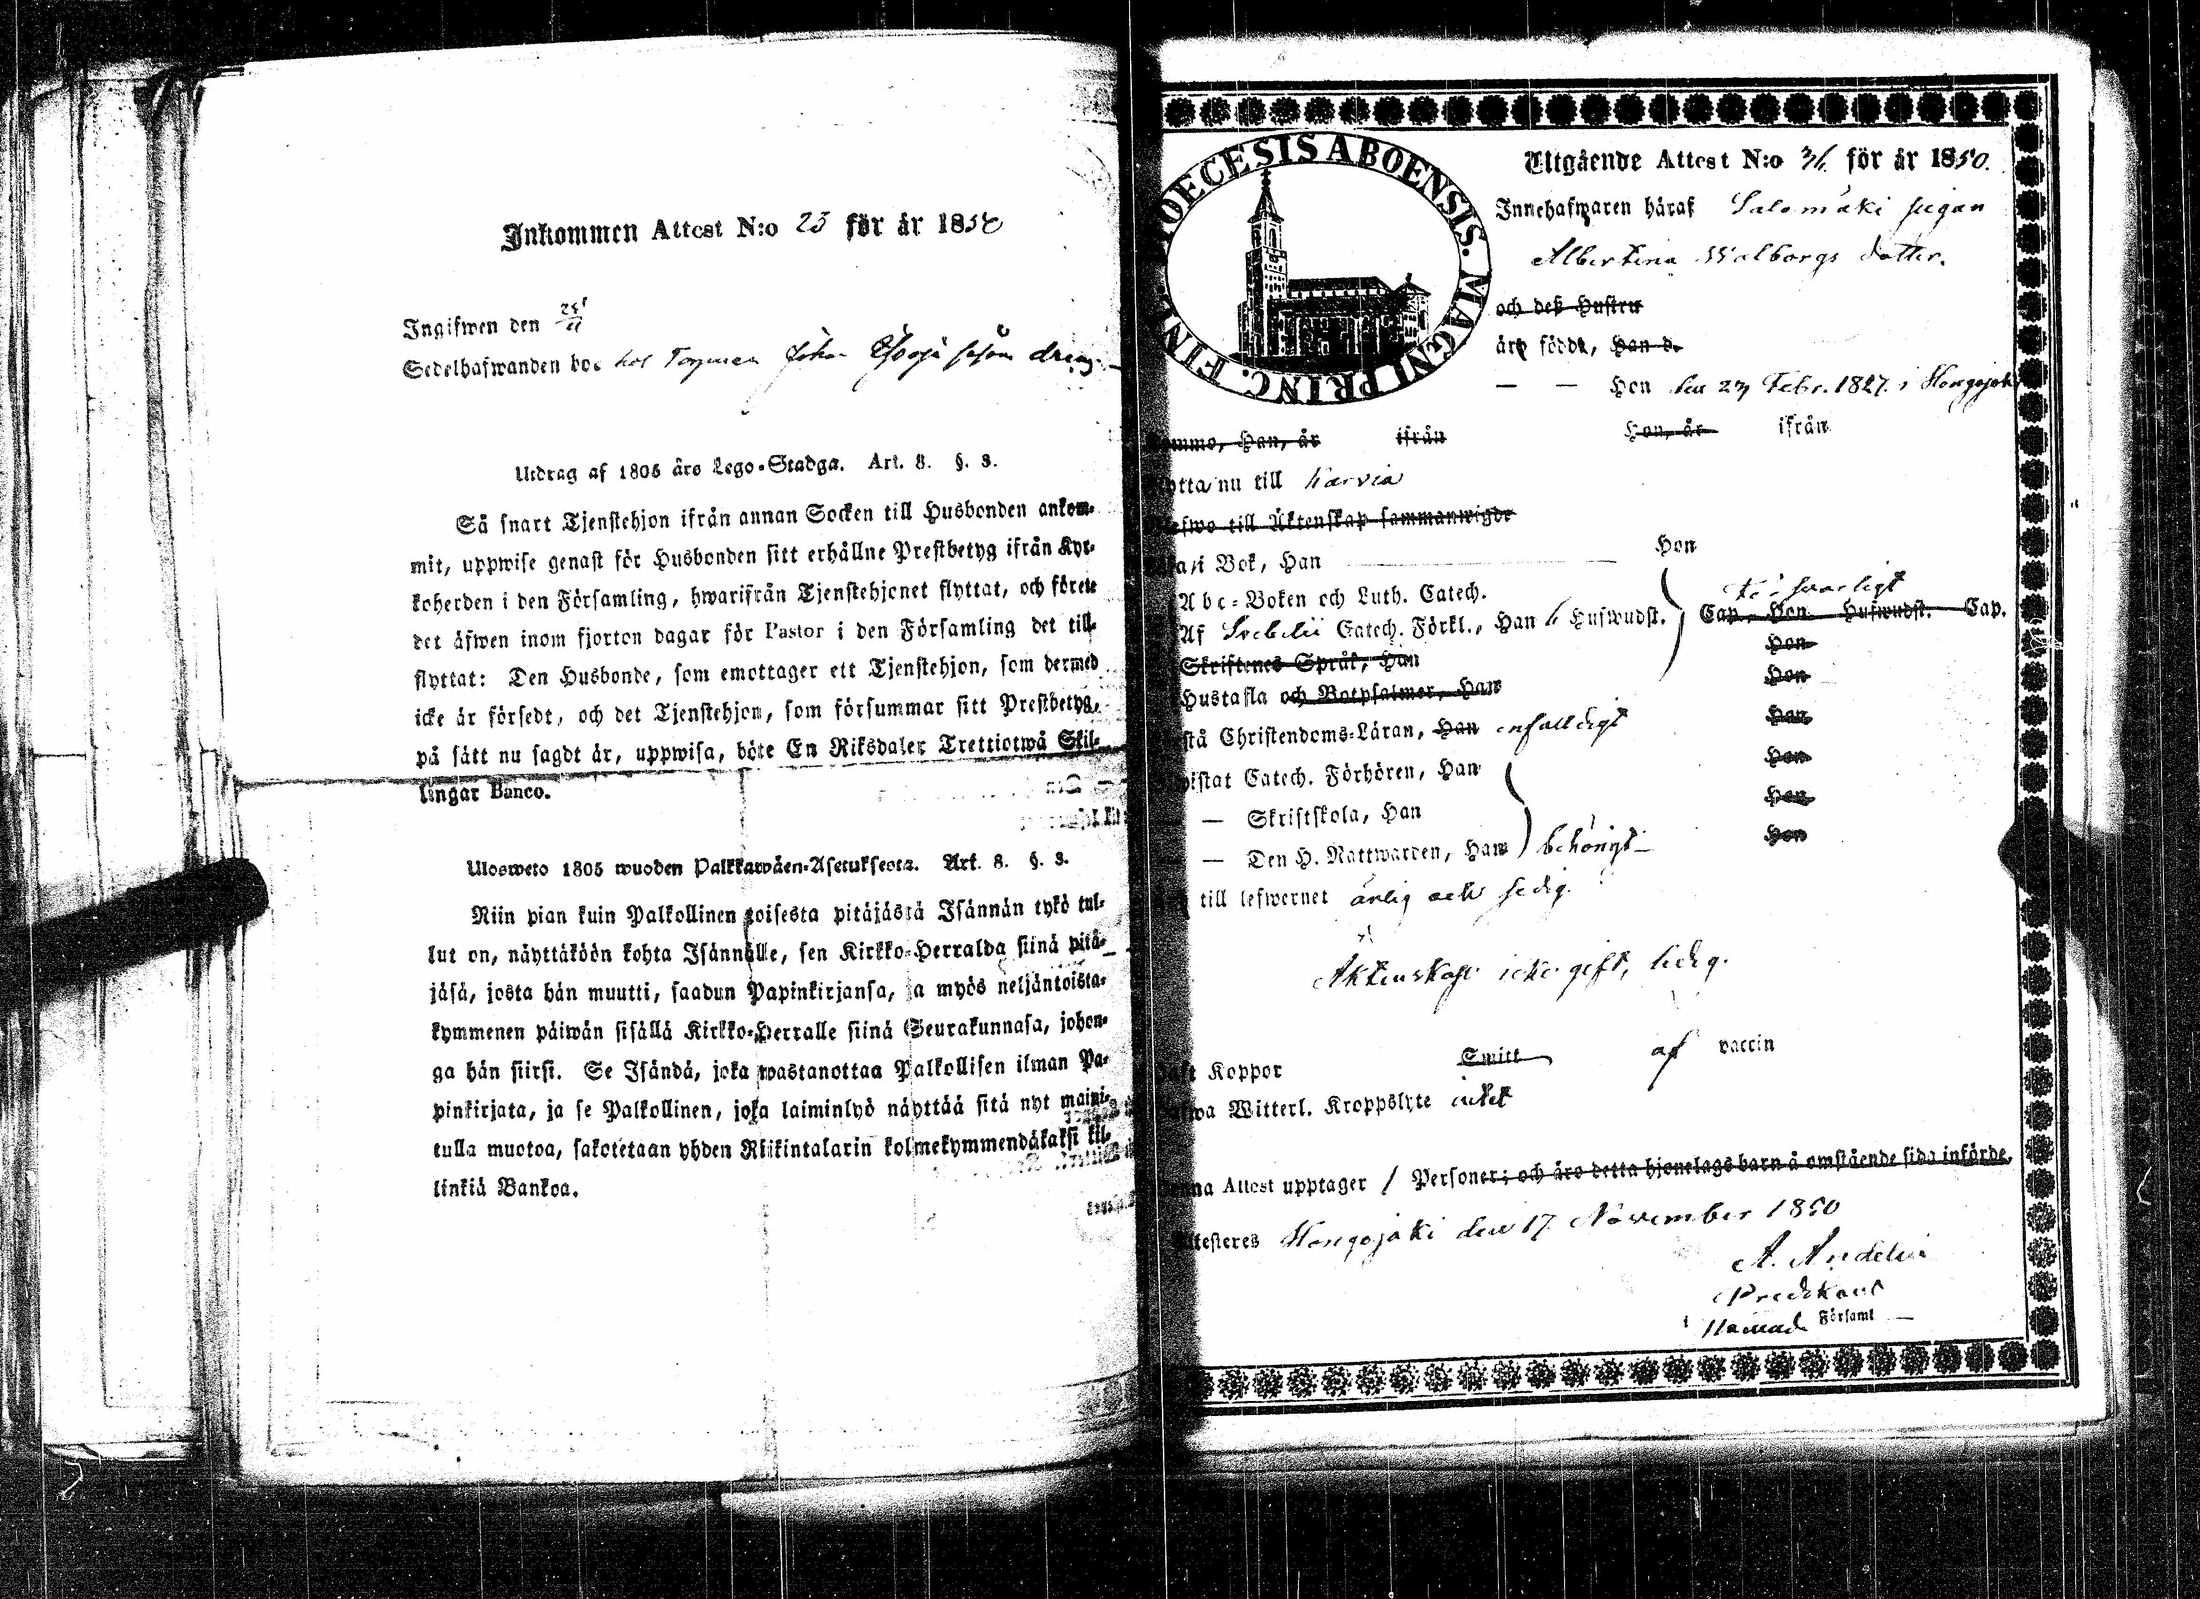 Inkommen Attest N:o 23 för år 1850
Ingifwen den
Sedelhafwanden bor hos Johan
Utdrag af 1805 års Lego-Stadga. Art. 8. §. 3.
Så snart Tjenstehjon ifrån annan Socken till Husbonden ankom-
mit, uppwise genast för Husbonden sitt erhållne Prestbetyg ifrån Kyr-
koherden i den Församling, hwarifrån Tjenstehjonet flyttat, och förete
det äfwen inom fjorton dagar för Pastor i den Församling det till-
flyttat: Den Husbonde, som emottager ett Tjenstehjon, som dermed
icke är försedt, och det Tjenstehjon, som försummar sitt Prestbetyg,
på sätt nu sagdt är, uppwisa, böte En Riksdaler Trettiotwå Skil-
lingar Banco.
Ulosweto 1805 wuoden Palkkawäen-Asetuksesta. Art. 8. §. 3.
Niin pian kuin Palkollinen toisesta pitäjästä Isännän tykö tul-
lut on, näyttäköön kohta Isännälle, sen Kirkko-Herralda siinä pitä-
jäsä, josta hän muutti, saadun Papinkirjansa, ja myös neljäntoista-
kymmenen päiwän sisällä Kirkko-Herralle siinä Seurakunnasa, johon-
ga hän siirsi. Se Isändä, joka wastanottaa Palkollisen ilman Pa-
pinkirjata, ja se Palkollinen, joka laiminlyö näyttää sitä nyt maini-
tulla muotoa, sakotetaan yhden Riikintalarin kolmekymmendäkaksi kil-
linkiä Bankoa.
DIOECESIS ABOENSIS. MAGNI PRINC. FINL.
Utgående Attest N:o för år 1850.
Innehafwaren häraf Salomäki pigan
Albertina Walborgs dotter.
och deß Hustru
äro födde, Han d.
— — Hon den 27 Febr. 1827. i Hongojoki
komme, Han, år ifrån Hon, år ifrån
flytta nu till Karvia
Blefwo till Äktenskap sammanwigde
Läsa i Bok, Han Hon
Abc-Boken och Luth. Catech. försvarligt
Af Svebelii Catech. Förkl., Han 6 Hufwudst. Cap. Hon Hufwudst. Cap.
Skriftenes Språk, Han Hon
Hustafla och Botpsalmer, Han Hon
förstå Christendoms-Läran, Han enfalldigt Hon
bewistat Catech. Förhören, Han Hon
— Skriftskola, Han Hon
— Den H. Nattwarden, Han behörigt Hon
till lefwernet ärlig och sedig.
Äktenskap icke gift, ledig.
haft Koppor Smitt af vaccin
hafwa Witterl. Kroppslyte intet
Denna Attest upptager 1 Personer; och äro detta hjonelags barn å omstående sida införde.
Attesteres Hongojoki den 17 November 1850
A. Andelin
Predikant
i Församl